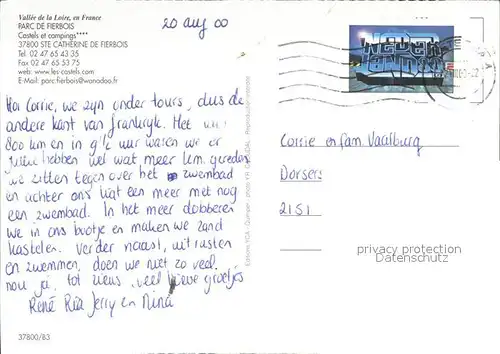 Vallée de la Loire, en France
PARC DE FIERBOIS
Castels et campings****
37800 STE CATHERINE DE FIERBOIS
Tel. 02 47 65 43 35
Fax 02 47 65 53 75
web: www.les-castels.com
E-Mail: parc.fierbois@wanadoo.fr
20 aug 00
NEDERLAND
Hoi Corrie, we zijn onder tours, dus de
andere kant van frankrijk. Het was
800 km en in g 1/2 uur waren we er
Jullie hebben wel wat meer km. gereden
we zitten tegen over het zwembad
en achter ons ligt een meer met nog
een zwembad. In het meer dobberen
we in ons bootje en maken we zand
kastelen. Verder naast, uitrusten
en zwemmen, doen we niet zo veel.
nou ja, tot ziens, veel lieve groetjes
René Ria Jerry en Nina
Corrie en fam. Vaalburg
Dorser
2151
privacy protection
Datenschutz
37800/83